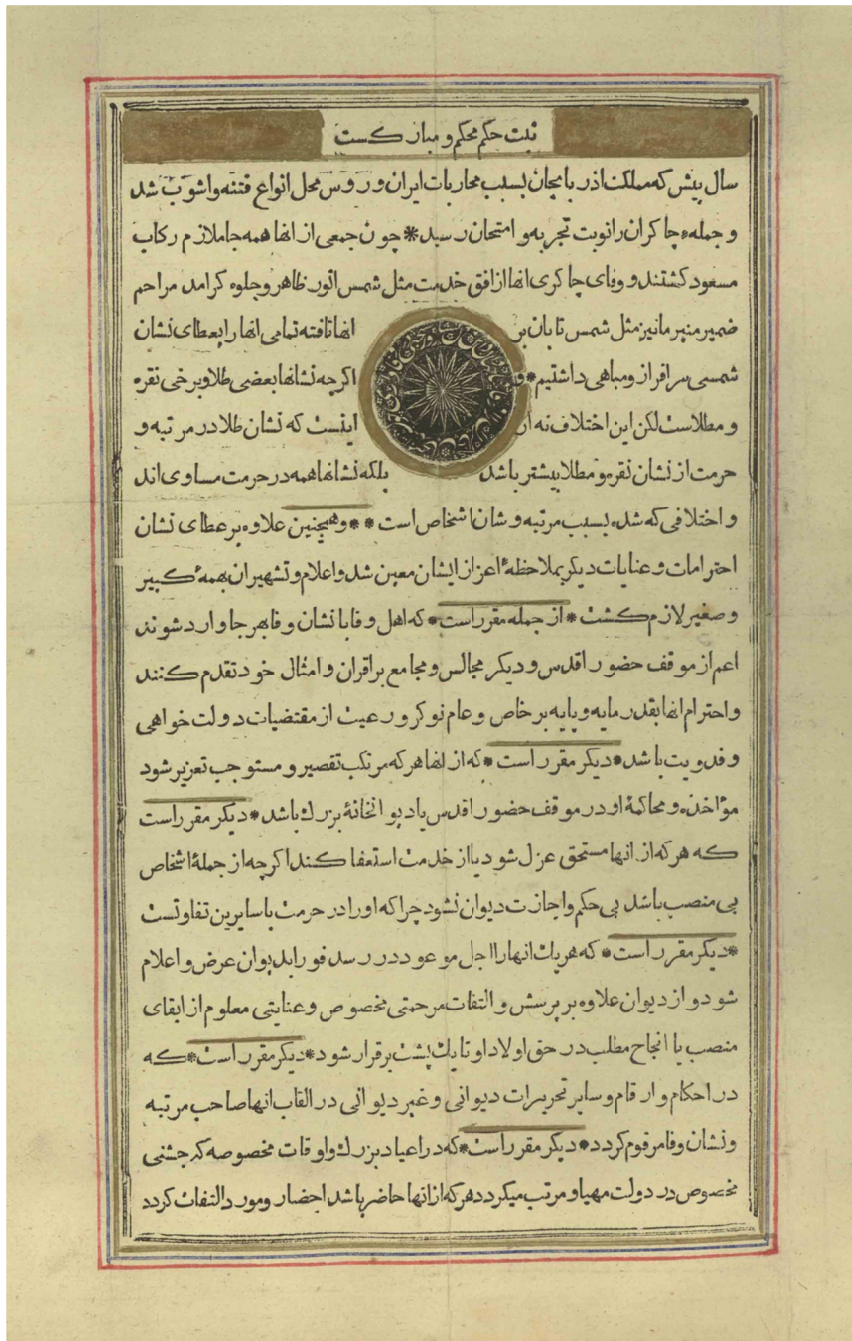 ثبت حکم محکم و مبارکست
سال پیش که مملکت اذربایجان بسبب محاربات ایران و روس محل انواع فتنه و اشوب شد
و جمله چاکران را نوبت تجربه و امتحان رسید * چون جمعی از انها همه جا ملازم رکاب
مسعود کشتند و وفای چاکری انها از افق خدمت مثل شمس انور ظاهر و جلوه کر امد مراحم
ضمیر منیر ما نیز مثل شمس تابان بر انها تافته تمامی انها را بعطای نشان
شمسی سرافراز و مباهی داشتیم * و اکرچه نشانها بعضی طلا و برخی نقره
و مطلاست لکن این اختلاف نه از اینست که نشان طلا در مرتبه و
حرمت از نشان نقره و مطلا بیشتر باشد بلکه نشانها همه در حرمت مساوی اند
و اختلافی که شده بسبب مرتبه و شان اشخاص است * * و همچنین علاوه بر عطای نشان
احترامات و عنایات دیکر بملاحظهٔ اعزاز ایشان معین شد و اعلام و تشهیر ان بهمهٔ کبیر
و صغیر لازم کشت * از جمله مقرر است * که اهل وفا با نشان وفا بهر جا وارد شوند
اعم از موقف حضور اقدس و دیکر مجالس و مجامع بر اقران و امثال خود تقدم کنند
و احترام انها بقدر مایه و پایه بر خاص و عام نوکر و رعیت از مقتضیات دولت خواهی
و فدویت باشد * دیکر مقرر است * که از انها هر که مرتکب تقصیر و مستوجب تعزیر شود
مؤاخذه و محاکمهٔ او در موقف حضور اقدس یا دیوانخانهٔ بزرك باشد * دیکر مقرر است
که هر که از انها مستحق عزل شود یا از خدمت استعفا کند اکرچه از جملهٔ اشخاص
بی منصب باشد بی حکم و اجازت دیوان نشود چرا که او را در حرمت با سایرین تفاوتست
* دیکر مقرر است * که هر یك انها را اجل موعود در رسد فورا بدیوان عرض و اعلام
شود و از دیوان علاوه بر پرسش و التفات مرحمتی مخصوص و عنایتی معلوم از ابقای
منصب یا انجاح مطلب در حق اولاد او تا یك پشت برقرار شود * دیکر مقرر است * که
در احکام و ارقام و سایر تحریرات دیوانی و غیر دیوانی در القاب انها صاحب مرتبه
و نشان وفا مرقوم کردد * دیکر مقرر است * که در اعیاد بزرك و اوقات مخصوصه که جشنی
مخصوص در دولت مهیا و مرتب میکردد هر که از انها حاضر باشد احضار و مورد التفات کردد